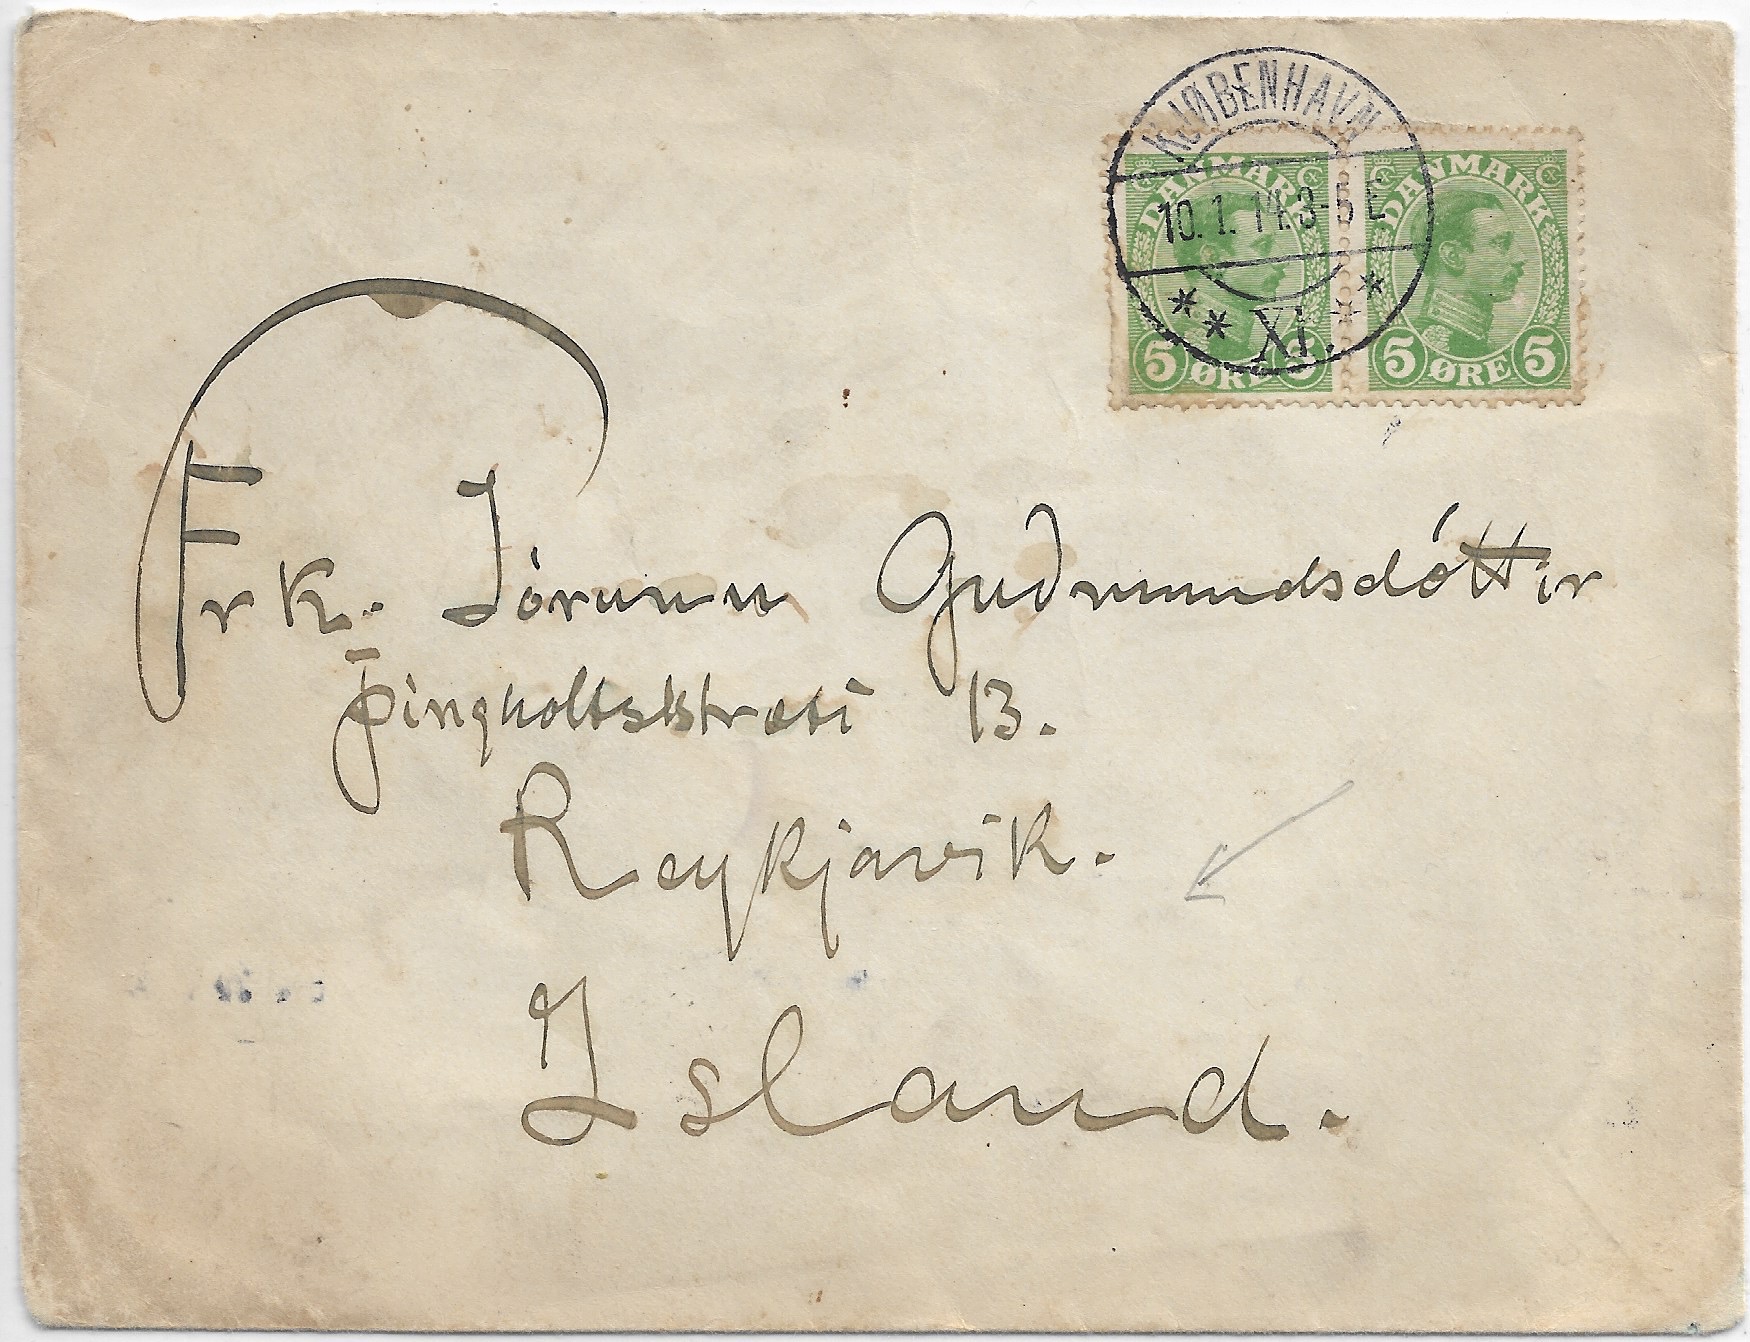 KJØBENHAVN
10.1.14.3-5 E
* * XI. * *
DANMARK
5 ØRE 5
DANMARK
5 ØRE 5
Frk. Jórunn Guðmundsdóttir
Þingholtsstræti 13.
Reykjavik.
Island.